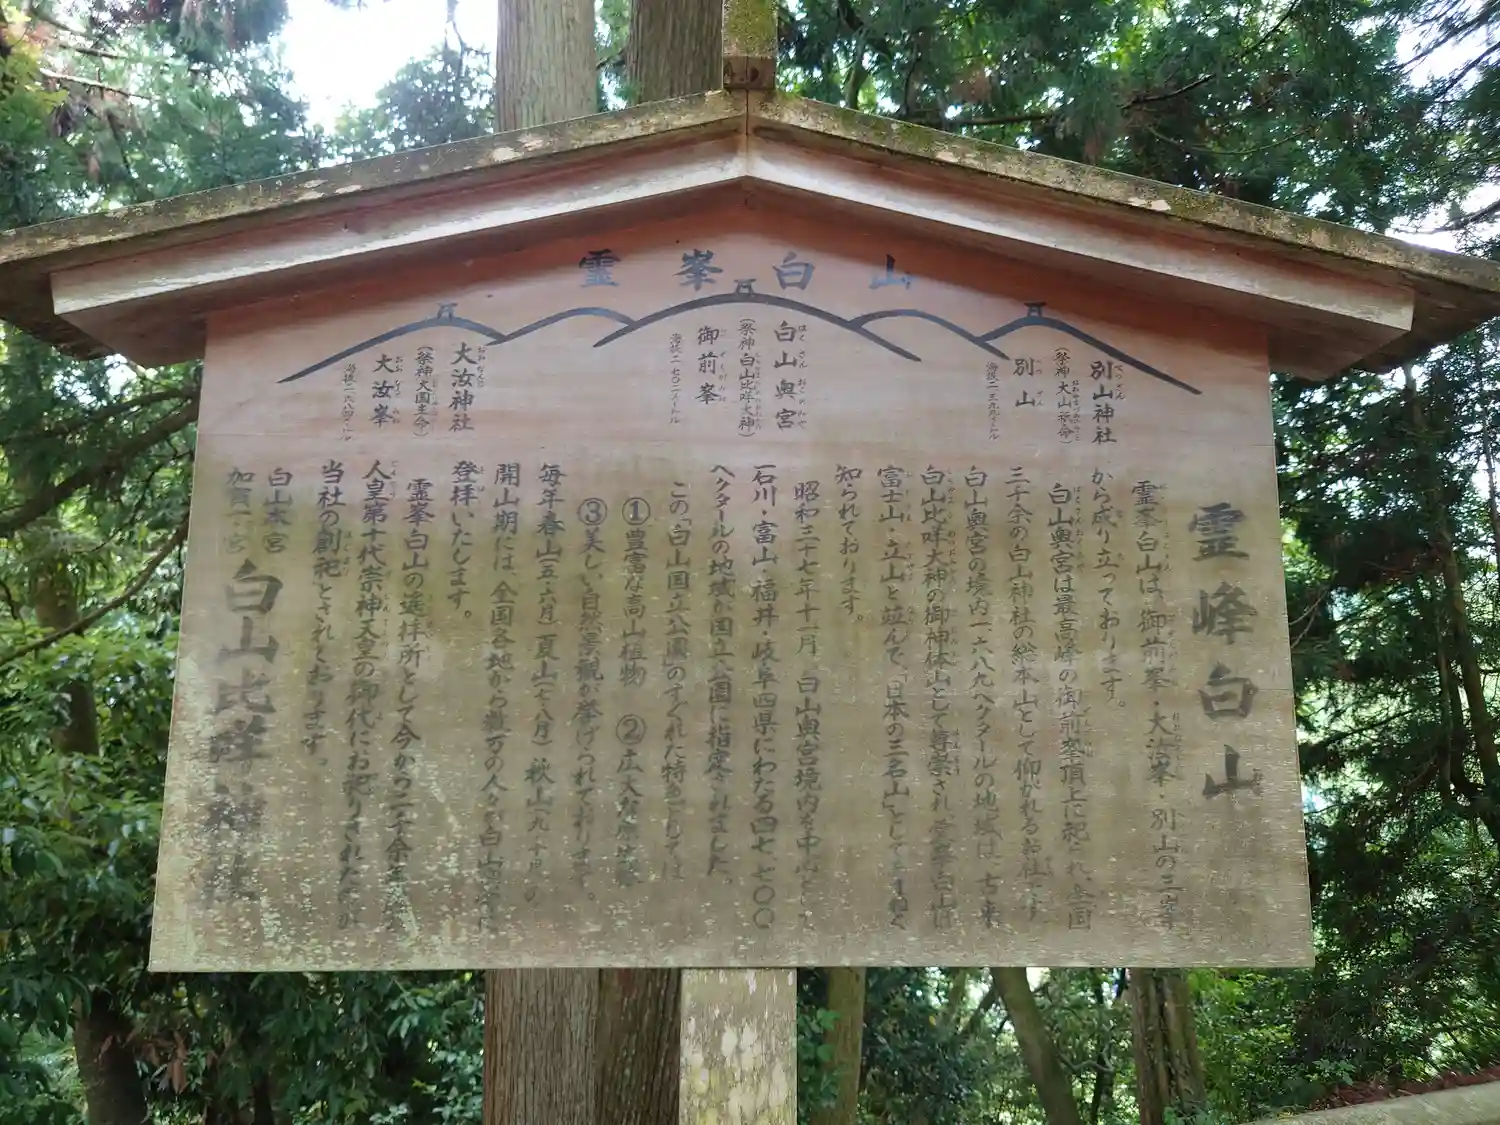 霊峯白山
別山神社
（祭神 大山祇命）
別山
海抜二三九九メートル
白山奥宮
（祭神 白山比咩大神）
御前峯
海抜二七〇二メートル
大汝神社
（祭神 大国主命）
大汝峯
海抜二六八四メートル
霊峰白山
霊峯白山は、御前峯・大汝峯・別山の三峰
から成り立っております。
白山奥宮は最高峰の御前峯頂上に祀られ、全国
三千余の白山神社の総本山として仰がれるお社です
白山奥宮の境内一六八九ヘクタールの地域は、古来
白山比咩大神の御神体山として尊崇され、霊峯白山は
富士山・立山と並んで、「日本の三名山」として
知られております。
昭和三十七年十一月、白山奥宮境内を中心とし
石川・富山・福井・岐阜四県にわたる四七、七〇〇
ヘクタールの地域が国立公園に指定されました。
この「白山国立公園」のすぐれた特色としては
①豊富な高山植物 ②広大な原生林
③美しい自然景観が挙げられております。
毎年春山（五・六月）夏山（七・八月）秋山（九・十月）の
開山期には、全国各地から数万の人々が白山
登拝いたします。
霊峯白山の遥拝所として今から二千余年
人皇第十代崇神天皇の御代にお祀りされたのが
当社の創祀とされております。
白山本宮
加賀一ノ宮 白山比咩神社